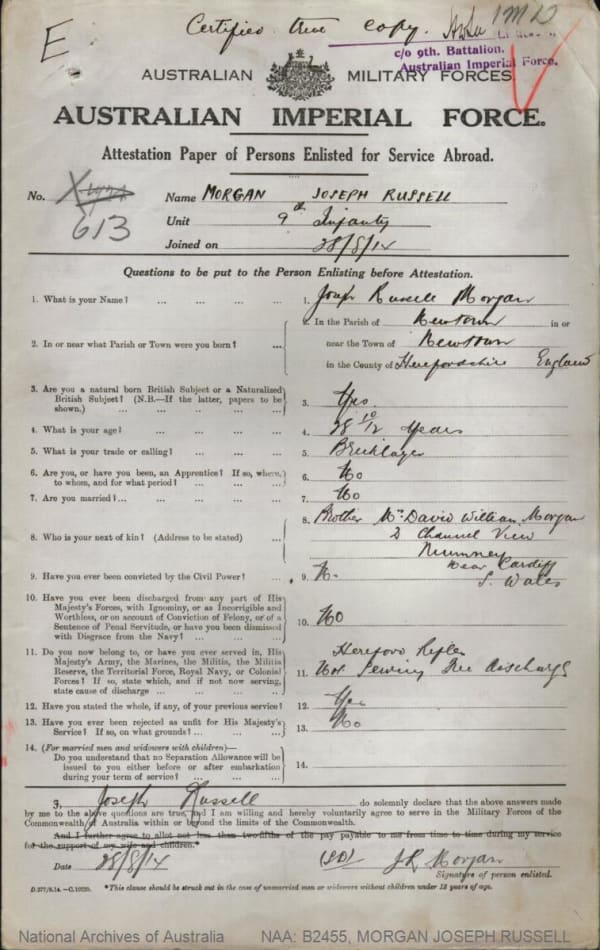 E
Certified true copy.
1MD
c/o 9th. Battalion.
Australian Imperial Force.
AUSTRALIAN MILITARY FORCES.
AUSTRALIAN IMPERIAL FORCE.
Attestation Paper of Persons Enlisted for Service Abroad.
No. 613 Name MORGAN JOSEPH RUSSELL
Unit 9th Infantry
Joined on 28/8/14
Questions to be put to the Person Enlisting before Attestation.
1. What is your Name? ... ... ... ... 1. Joseph Russell Morgan
2. In or near what Parish or Town were you born? ... ... 2. In the Parish of Newtown in or
near the Town of Newtown
in the County of Herefordshire England
3. Are you a natural born British Subject or a Naturalized
British Subject? (N.B.—If the latter, papers to be
shown.) ... ... ... ... ... 3. Yes
4. What is your age? ... ... ... ... 4. 28 10/12 Years
5. What is your trade or calling? ... ... ... 5. Bricklayer
6. Are you, or have you been, an Apprentice? If so, where,
to whom, and for what period? ... ... ... 6. No
7. Are you married? ... ... ... ... ... 7. No
8. Who is your next of kin? (Address to be stated) ... 8. Brother Mr. David William Morgan
2 Channel View
Rumney
near Cardiff
S. Wales
9. Have you ever been convicted by the Civil Power? ... 9. No
10. Have you ever been discharged from any part of His
Majesty's Forces, with Ignominy, or as Incorrigible and
Worthless, or on account of Conviction of Felony, or of a
Sentence of Penal Servitude, or have you been dismissed
with Disgrace from the Navy? ... ... ... 10. No
11. Do you now belong to, or have you ever served in, His
Majesty's Army, the Marines, the Militia, the Militia
Reserve, the Territorial Force, Royal Navy, or Colonial
Forces? If so, state which, and if not now serving,
state cause of discharge ... ... ... ... 11. Hereford Rifles
Not Serving Free discharge
12. Have you stated the whole, if any, of your previous service? 12. Yes
13. Have you ever been rejected as unfit for His Majesty's
Service? If so, on what grounds? ... ... ... 13. No
14. (For married men and widowers with children)—
Do you understand that no Separation Allowance will be
issued to you either before or after embarkation
during your term of service? ... ... ... 14.
I, Joseph Russell do solemnly declare that the above answers made
by me to the above questions are true, and I am willing and hereby voluntarily agree to serve in the Military Forces of the
Commonwealth of Australia within or beyond the limits of the Commonwealth.
And I further agree to allot not less than two-fifths of the pay payable to me from time to time during my service
for the support of my wife and children.*
Date 28/8/14 (SD) J R Morgan
Signature of person enlisted.
D.277/8.14.—C.10220. *This clause should be struck out in the case of unmarried men or widowers without children under 18 years of age.
National Archives of Australia NAA: B2455, MORGAN JOSEPH RUSSELL